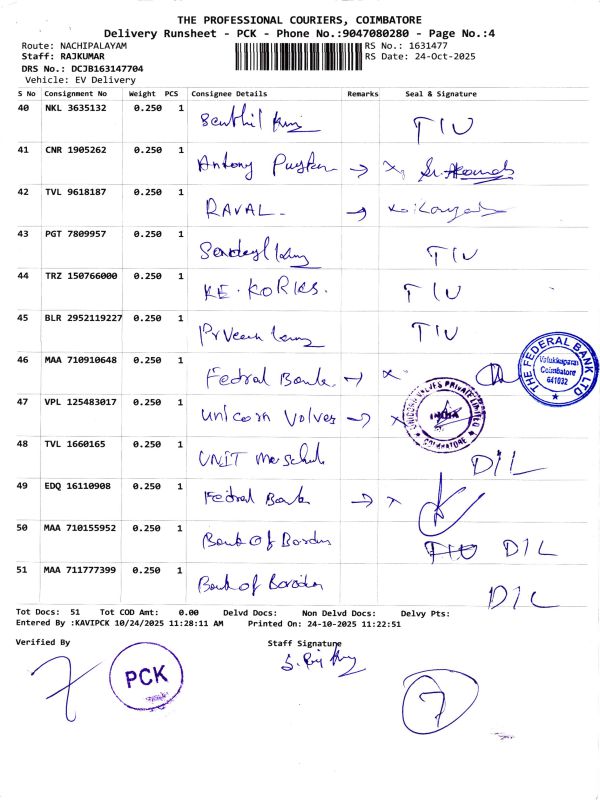 THE PROFESSIONAL COURIERS, COIMBATORE
Delivery Runsheet - PCK - Phone No.:9047080280 - Page No.:4
Route: NACHIPALAYAM RS No.: 1631477
Staff: RAJKUMAR RS Date: 24-Oct-2025
DRS No.: DCJB163147704
Vehicle: EV Delivery
S No Consignment No Weight PCS Consignee Details Remarks Seal & Signature
40 NKL 3635132 0.250 1 Senthil TIU
41 CNR 1905262 0.250 1 Antony → x
42 TVL 9618187 0.250 1 RAVAL. → x
43 PGT 7809957 0.250 1 TIU
44 TRZ 150766000 0.250 1 KE. KORKS. TIU
45 BLR 2952119227 0.250 1 TIU
46 MAA 710910648 0.250 1 Fedral Bank. → x
THE FEDERAL BANK LTD
Coimbatore
641032
47 VPL 125483017 0.250 1 Unicorn Valves → x
UNICORN VALVES PRIVATE LIMITED
INDIA
COIMBATORE
48 TVL 1660165 0.250 1 UNIT DIL
49 EDQ 16110908 0.250 1 Fedral Bank → x
50 MAA 710155952 0.250 1 Bank Of TIU DIL
51 MAA 711777399 0.250 1 Bank of DIL
Tot Docs: 51 Tot COD Amt: 0.00 Delvd Docs: Non Delvd Docs: Delvy Pts:
Entered By :KAVIPCK 10/24/2025 11:28:11 AM Printed On: 24-10-2025 11:22:51
Verified By Staff Signature
PCK
7